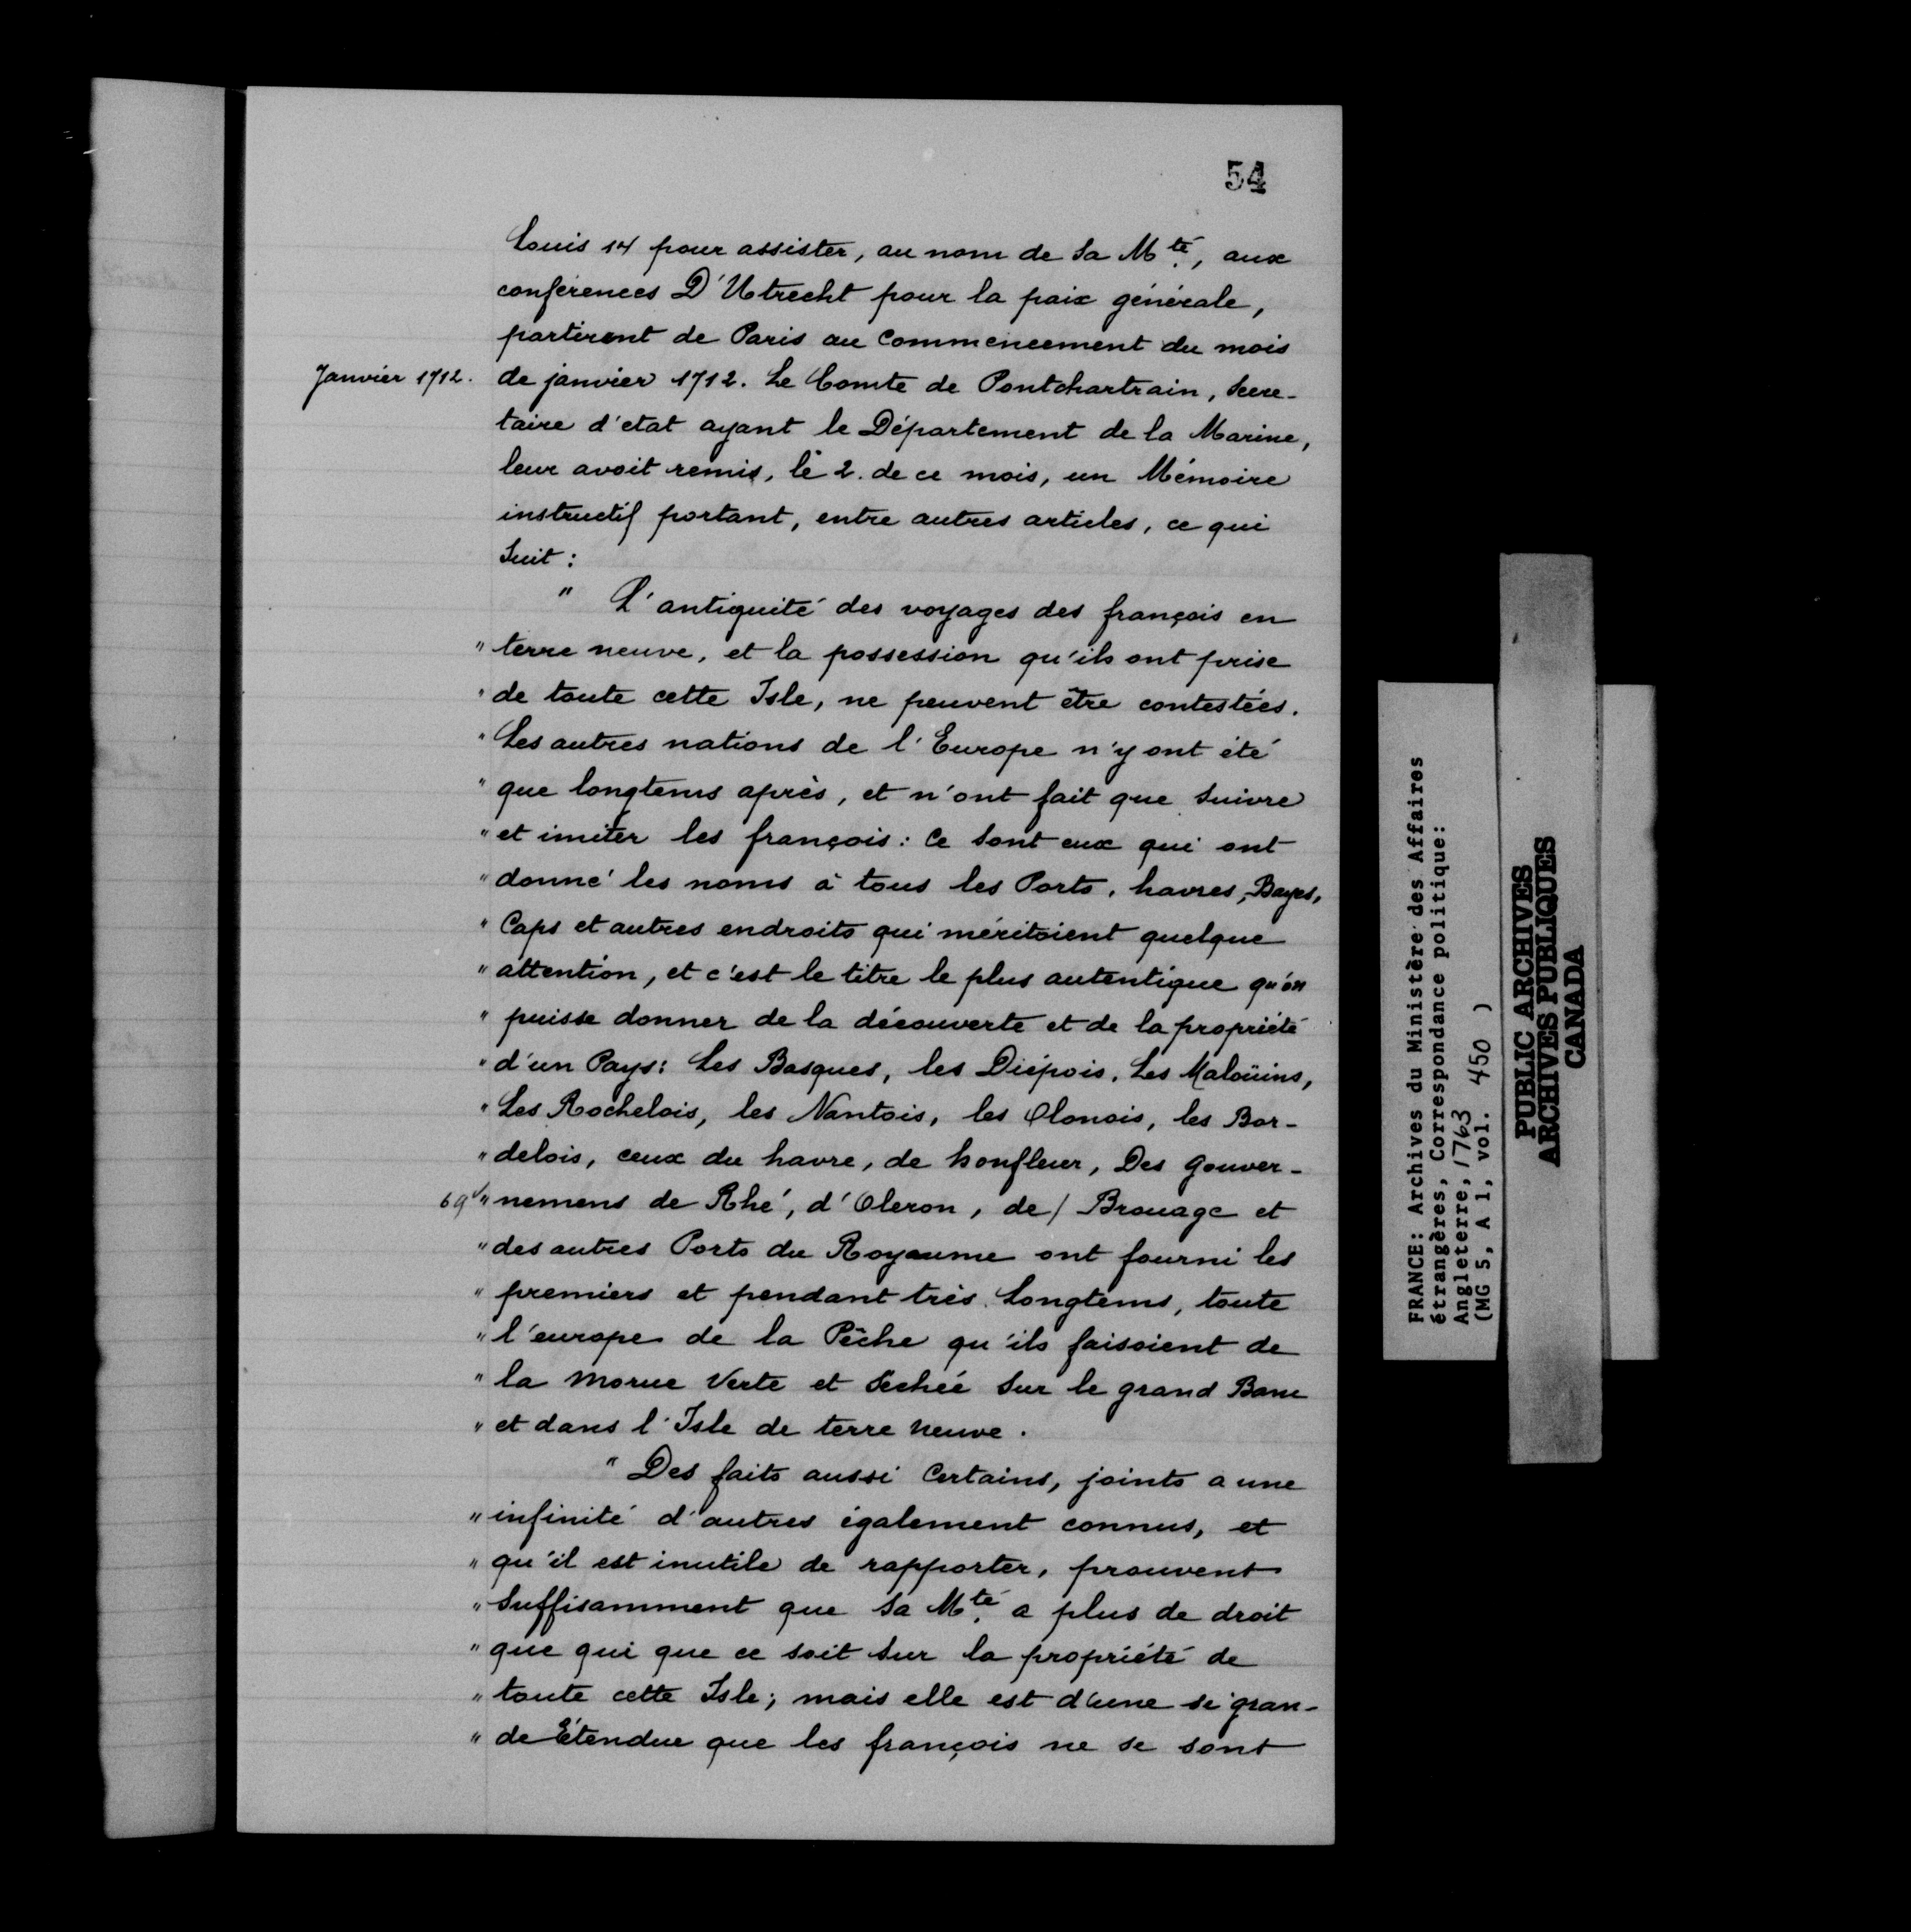 54
Louis 14 pour assister, au nom de Sa Mté, aux
conférences D'Utrecht pour la paix générale,
partirent de Paris au Commencement du mois
Janvier 1712.
de janvier 1712. Le Comte de Pontchartrain, Secre-
taire d'etat ayant le Département de la Marine,
leur avoit remis, le 2. de ce mois, un Mémoire
instructif portant, entre autres articles, ce qui
Suit :
" L'antiquité des voyages des françois en
" terre neuve, et la possession qu'ils ont prise
" de toute cette Isle, ne peuvent être contestées.
" Les autres nations de l'Europe n'y ont été
" que longtems après, et n'ont fait que Suivre
" et imiter les françois : Ce Sont eux qui ont
" donné les noms à tous les Ports, havres, Bayes,
" Caps et autres endroits qui méritoient quelque
" attention, et c'est le titre le plus autentique qu'on
" puisse donner de la découverte et de la propriété
" d'un Pays : Les Basques, les Diépois, Les Maloüins,
" Les Rochelois, les Nantois, les Olonois, les Bor-
" delois, ceux du havre, de honfleur, Des gouver-
69v " nemens de Rhé, d'Oleron, de / Brouage et
" des autres Ports du Royaume ont fourni les
" premiers et pendant très Longtems, toute
" l'europe de la Pêche qu'ils faisoient de
" la Morue Verte et Séchée Sur le grand Banc
" et dans l'Isle de terre Neuve.
" Des faits aussi Certains, joints a une
" infinité d'autres également connus, et
" qu'il est inutile de rapporter, prouvent
" Suffisamment que Sa Mté a plus de droit
" que qui que ce soit Sur la propriété de
" toute cette Isle ; mais elle est d'une si gran-
" de Etendue que les françois ne se sont
FRANCE: Archives du Ministère des Affaires
étrangères, Correspondance politique:
Angleterre, 1763
(MG 5, A 1, vol. 450 )
PUBLIC ARCHIVES
ARCHIVES PUBLIQUES
CANADA